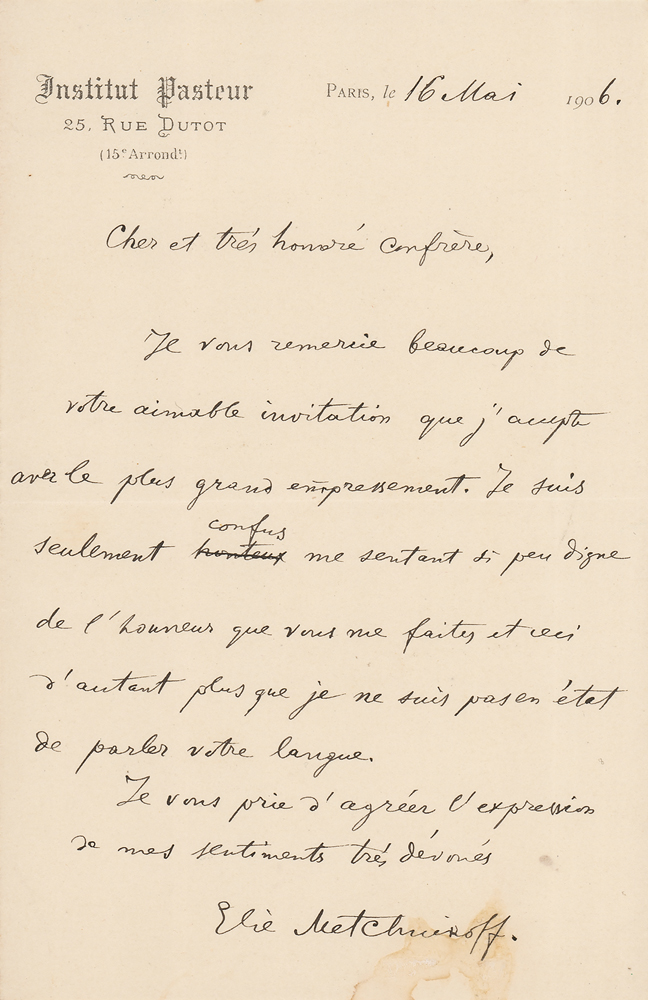 Institut Pasteur
25, Rue Dutot
(15e Arrondt)
Paris, le 16 Mai 1906.
Cher et très honoré confrère,
Je vous remercie beaucoup de
votre aimable invitation que j'accepte
avec le plus grand empressement. Je suis
confus
seulement honteux me sentant si peu digne
de l'honneur que vous me faites et ceci
d'autant plus que je ne suis pas en état
de parler votre langue.
Je vous prie d'agréer l'expression
de mes sentiments très dévoués
Elie Metchnikoff.